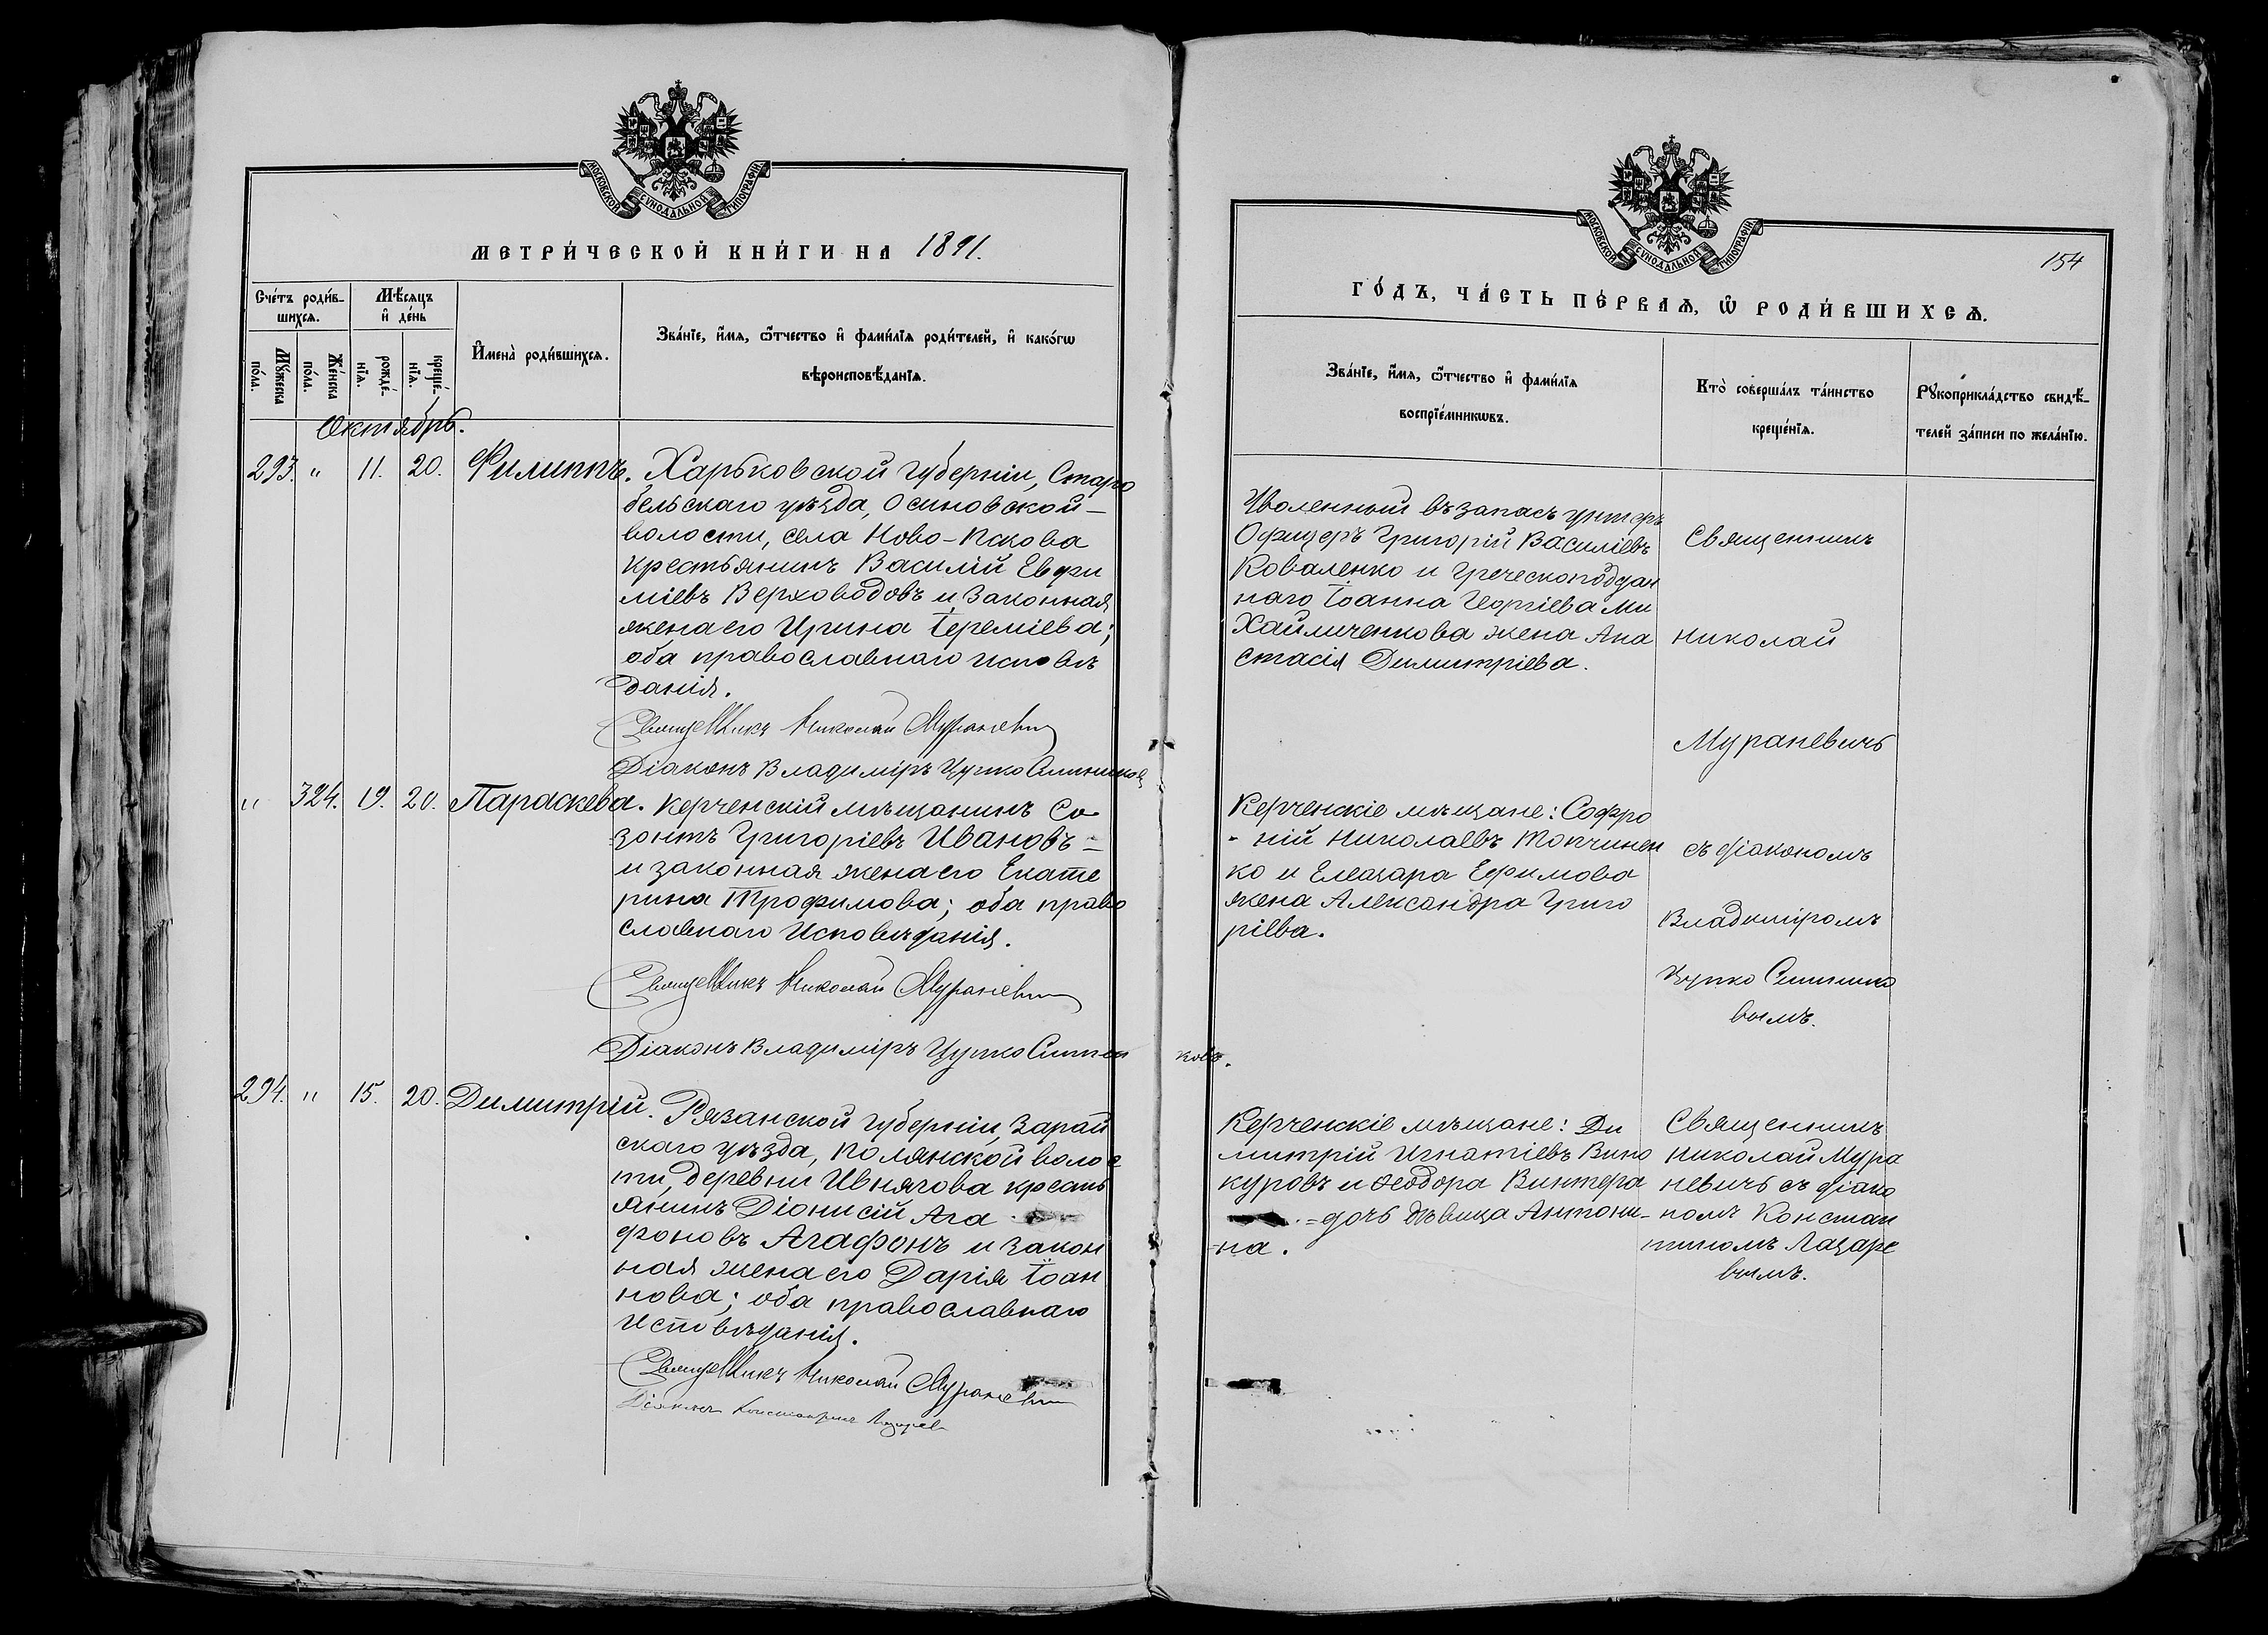 МОСКОВСКОЙ СУНОДАЛЬНОЙ ТИПОГРАФІИ
МЕТРИ́ЧЕСКОЙ КНИ́ГИ НА 1891.
Сче́тъ роди́в-
шихсѧ.
Мѣ́сяцъ
и҆ де́нь
Мꙋ́жеска
по́ла.
Же́нска
по́ла.
рожде́-
нїѧ.
креще́-
нїѧ.
И҆мена̀ роди́вшихсѧ.
Зва́нїе, и҆́мѧ, ѻ҆́тчество и҆ фами́лїѧ роди́телей, и҆ како́гѡ
вѣроисповѣ́данїѧ.
Октябрь.
293. " 11. 20. Филиппъ.
Харьковской губерніи, Старо
бельскаго уѣзда, Осиновской-
волости, села Ново-Пскова
крестьянинъ Василій Евфи
міевъ Верховодовъ и законная
жена его Ирина Іереміева;
оба православнаго исповѣ
данія.
Священникъ Николай Мураневич
Діаконъ Владиміръ Цупко Ситников
" 324. 19. 20. Параскева.
Керченскій мѣщанинъ Со-
зонтъ Григоріевъ Ивановъ=
и законная жена его Екате
рина Трофимова; оба право
славнаго Исповѣданія.
Священникъ Николай Мураневич
Діаконъ Владиміръ Цупко Ситни ковъ.
294. " 15. 20. Димитрій.
Рязанской губерніи, Зарай
скаго уѣзда, Полянской волос
ти, деревни Ивнягова кресть
янинъ Діонисій Ага
фоновъ Агафонъ и закон
ная жена его Дарія Іоан
нова; оба православнаго
Исповѣданія.
Священникъ Николай Мураневич
Діаконъ Константинъ Лазарев
МОСКОВСКОЙ СУНОДАЛЬНОЙ ТИПОГРАФІИ
154
ГО́ДЪ, ЧА́СТЬ ПЕ́РВАѦ, Ѡ҆ РОДИ́ВШИХСѦ.
Зва́нїе, и҆́мѧ, ѻ҆́тчество и҆ фами́лїѧ
воспрїе́мникѡвъ.
Кто̀ соверша́лъ та́инство
креще́нїѧ.
Рꙋкоприкла́дство свидѣ́-
телей за́писи по жела́нїю.
Уволенный въ запасъ унтеръ
Офицеръ Григорій Василіевъ
Коваленко и Греческоподдан
наго Іоанна Георгіева Ми
хайличенкова жена Ана
стасія Димитріева.
Священникъ
Николай
Мураневичъ
Керченскіе мѣщане: Софро
-ній Николаевъ Топчинен
ко и Елеазара Ефимова
жена Александра Григо
ріева.
съ діакономъ
Владиміромъ
Цупко Ситнико
вымъ.
Керченскіе мѣщане: Ди
митрій Игнатіевъ Вино
куровъ и Ѳеодора Винтера
=дочь дѣвица Антони-
на.
Священникъ
Николай Мура
невичъ съ діако
номъ Констан
тиномъ Лазаре
вымъ.